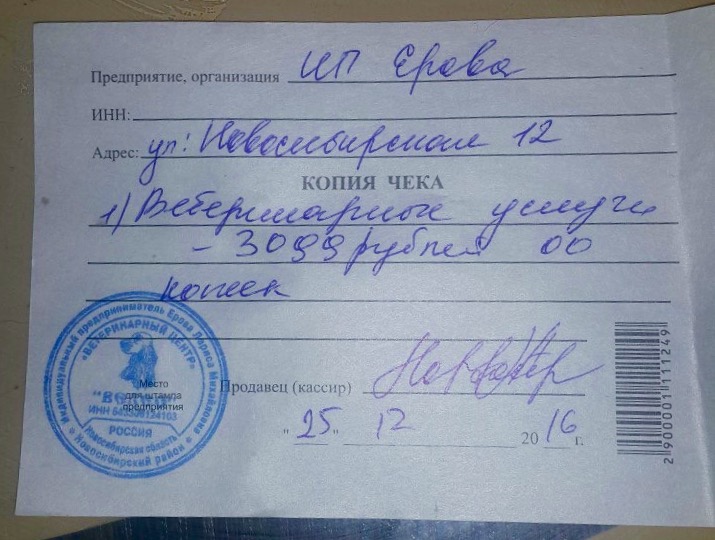 Предприятие, организация ИП Ерова
ИНН:
Адрес: ул: Новосибирская 12
КОПИЯ ЧЕКА
1) Ветеринарные услуги
- 3099 рублей 00
копеек
Индивидуальный предприниматель Ерова Лариса Михайловна
«ВЕТЕРИНАРНЫЙ ЦЕНТР»
Место
для штампа
предприятия
РОССИЯ
Новосибирская область
Новосибирский район
Продавец (кассир)
" 25 " 12 2016 г.
2 900001 111249